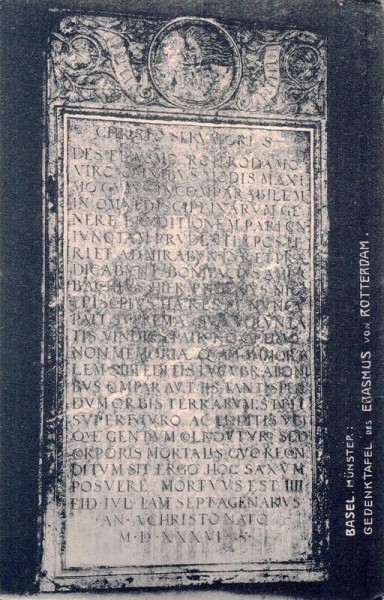 CHRISTO SERVATORI S
DES ERASMO ROTERODAMO
VIRO OMNIBVS MODIS MAXI
MO CVIVS INCOMPARABILEM
IN OMNI DISCIPLINARVM GE
NERE ERVDITIONEM PARI CON
IVNCTAM PRVDENTIA POSTE
RI ET ADMIRABVNTVR ET PRAE
DICABVNT BONIFACIVS
HIER FROBENIVS NIC
EPISCOPIVS HAERED ET NVNCV
PATI SVPREMAE SVAE VOLVNTA
TIS VINDICES PATRONO OPTIMO
NON MEMORIAE QVAM IMMORTA
LEM SIBI EDITIS LVCVBRATIONI
BVS COMPARAVIT IIS TANTISPER
DVM ORBIS TERRARVM STABIT
SVPERFVTVRO AC ERVDITIS VBI
QVE GENTIVM COLLOQVVTVRO SED
CORPORIS MORTALIS QVO RECON
DITVM SIT ERGO HOC SAXVM
POSVERE MORTVVS EST IIII
EID IVL IAM SEPTVAGENARIVS
AN A CHRISTO NATO
M D XXXVI
BASEL MÜNSTER:
GEDENKTAFEL DES ERASMUS VON ROTTERDAM.